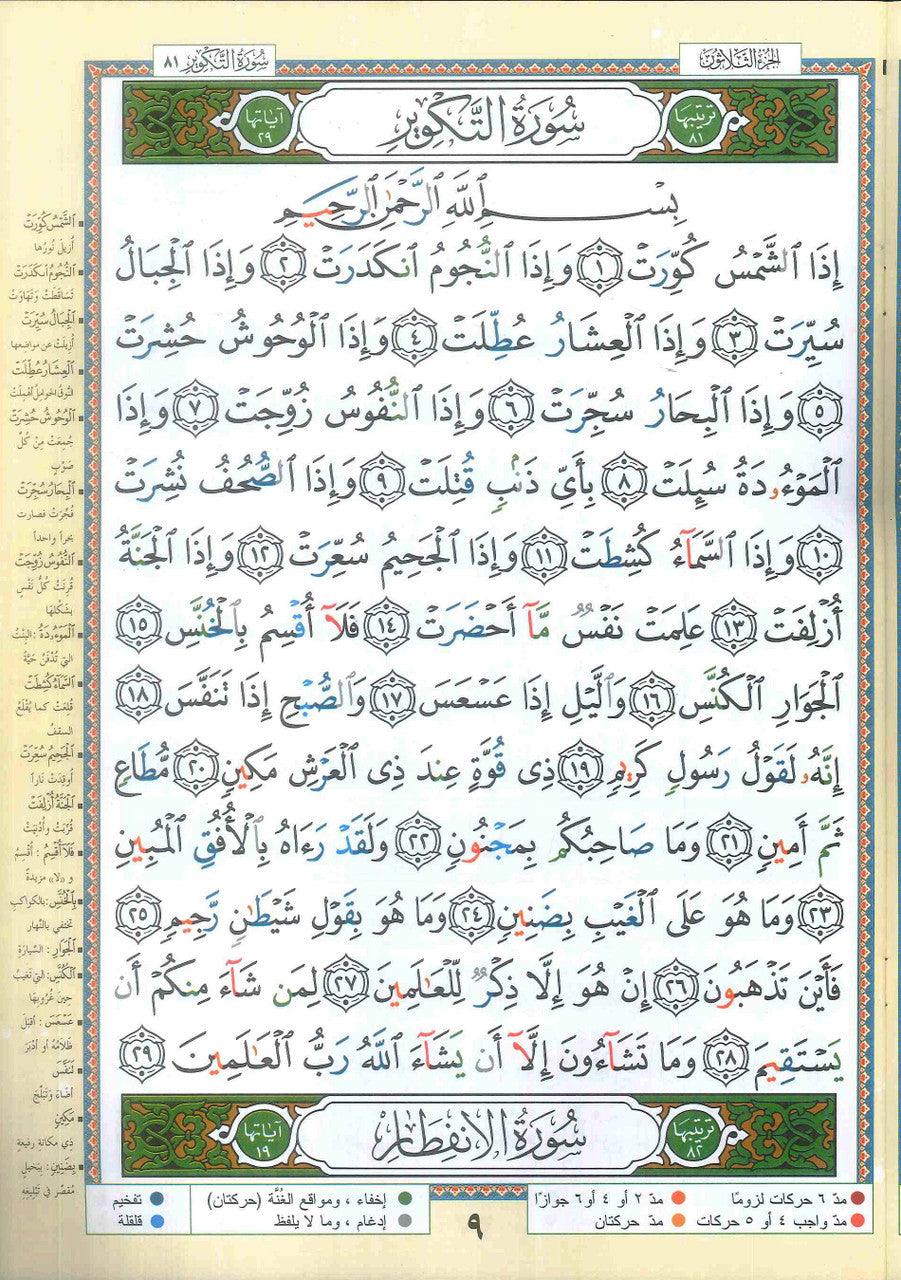 الجزء الثلاثون
سورة التكوير ٨١
ترتيبها ٨١
سُورَةُ التَّكْوِيرِ
آياتها ٢٩
بِسْمِ ٱللَّهِ ٱلرَّحْمَٰنِ ٱلرَّحِيمِ
إِذَا ٱلشَّمْسُ كُوِّرَتْ ١ وَإِذَا ٱلنُّجُومُ ٱنكَدَرَتْ ٢ وَإِذَا ٱلْجِبَالُ
سُيِّرَتْ ٣ وَإِذَا ٱلْعِشَارُ عُطِّلَتْ ٤ وَإِذَا ٱلْوُحُوشُ حُشِرَتْ
٥ وَإِذَا ٱلْبِحَارُ سُجِّرَتْ ٦ وَإِذَا ٱلنُّفُوسُ زُوِّجَتْ ٧ وَإِذَا
ٱلْمَوْءُۥدَةُ سُئِلَتْ ٨ بِأَىِّ ذَنۢبٍ قُتِلَتْ ٩ وَإِذَا ٱلصُّحُفُ نُشِرَتْ
١٠ وَإِذَا ٱلسَّمَآءُ كُشِطَتْ ١١ وَإِذَا ٱلْجَحِيمُ سُعِّرَتْ ١٢ وَإِذَا ٱلْجَنَّةُ
أُزْلِفَتْ ١٣ عَلِمَتْ نَفْسٌ مَّآ أَحْضَرَتْ ١٤ فَلَآ أُقْسِمُ بِٱلْخُنَّسِ ١٥
ٱلْجَوَارِ ٱلْكُنَّسِ ١٦ وَٱلَّيْلِ إِذَا عَسْعَسَ ١٧ وَٱلصُّبْحِ إِذَا تَنَفَّسَ ١٨
إِنَّهُۥ لَقَوْلُ رَسُولٍ كَرِيمٍ ١٩ ذِى قُوَّةٍ عِندَ ذِى ٱلْعَرْشِ مَكِينٍ ٢٠ مُّطَاعٍ
ثَمَّ أَمِينٍ ٢١ وَمَا صَاحِبُكُم بِمَجْنُونٍ ٢٢ وَلَقَدْ رَءَاهُ بِٱلْأُفُقِ ٱلْمُبِينِ
٢٣ وَمَا هُوَ عَلَى ٱلْغَيْبِ بِضَنِينٍ ٢٤ وَمَا هُوَ بِقَوْلِ شَيْطَٰنٍ رَّجِيمٍ ٢٥
فَأَيْنَ تَذْهَبُونَ ٢٦ إِنْ هُوَ إِلَّا ذِكْرٌ لِّلْعَٰلَمِينَ ٢٧ لِمَن شَآءَ مِنكُمْ أَن
يَسْتَقِيمَ ٢٨ وَمَا تَشَآءُونَ إِلَّآ أَن يَشَآءَ ٱللَّهُ رَبُّ ٱلْعَٰلَمِينَ ٢٩
ترتيبها ٨٢
سُورَةُ الانفِطَارِ
آياتها ١٩
ٱلشَّمْسُ كُوِّرَتْ
أُزيلَ نُورُها
ٱلنُّجُومُ ٱنكَدَرَتْ
تَسَاقَطَتْ وَتَهَاوَتْ
ٱلْجِبَالُ سُيِّرَتْ
أُزيلَتْ عن مواضعها
ٱلْعِشَارُ عُطِّلَتْ
النُّوقُ الحَوامِلُ أُهْمِلَتْ
ٱلْوُحُوشُ حُشِرَتْ
جُمِعَتْ مِنْ كُلِّ
صَوْبٍ
ٱلْبِحَارُ سُجِّرَتْ
فُجِّرَتْ فصارت
بحراً واحداً
ٱلنُّفُوسُ زُوِّجَتْ
قُرِنَتْ كُلُّ نَفْسٍ
بشَكْلِهَا
ٱلْمَوْءُۥدَةُ : البنْتُ
التي تُدْفَنُ حَيَّةً
ٱلسَّمَآءُ كُشِطَتْ
قُلِعَتْ كما يُقْلَعُ
السقفُ
ٱلْجَحِيمُ سُعِّرَتْ
أُوقِدَتْ نَاراً
ٱلْجَنَّةُ أُزْلِفَتْ
قُرِّبَتْ وأُدْنِيَتْ
فَلَآ أُقْسِمُ : أقْسِمُ
و «لا» مزيدةٌ
بِٱلْخُنَّسِ : بالكواكبِ
تختفي بالنَّهارِ
ٱلْجَوَارِ : السيَّارَةِ
ٱلْكُنَّسِ : التي تَغيبُ
حِينَ غُرُوبِهَا
عَسْعَسَ : أقبَلَ
ظَلامُهُ أو أدْبَرَ
تَنَفَّسَ
أضَاءَ وَتَبَلَّجَ
مَكِينٍ
ذي مكانةٍ رفيعةٍ
بِضَنِينٍ : ببَخِيلٍ
مُقصِّرٍ في تَبْلِيغِهِ
مدّ ٦ حركات لزوماً
مدّ ٢ أو ٤ أو ٦ جوازاً
إخفاء ، ومواقع الغُنَّة (حركتان)
تفخيم
مدّ واجب ٤ أو ٥ حركات
مدّ حركتان
إدغام ، وما لا يلفظ
قلقلة
٩